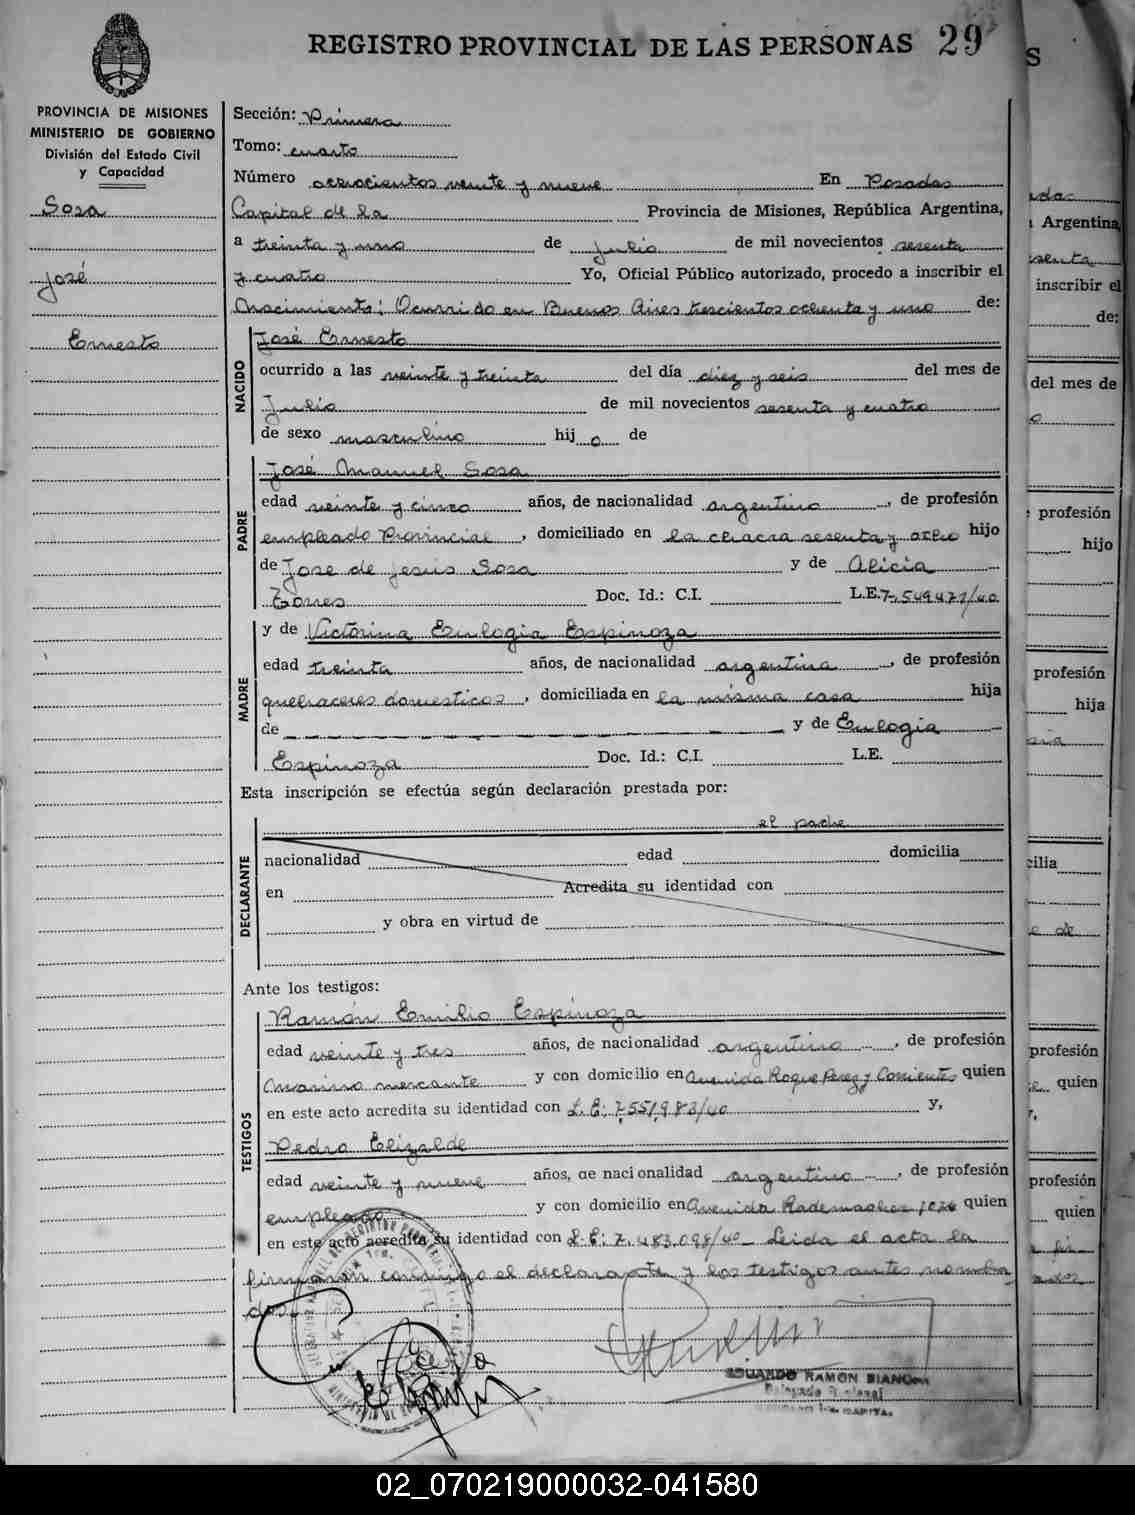 REGISTRO PROVINCIAL DE LAS PERSONAS 29
S
PROVINCIA DE MISIONES
MINISTERIO DE GOBIERNO
División del Estado Civil
y Capacidad
Sosa
José
Ernesto
Sección: Primera
Tomo: cuarto
Número ochocientos veinte y nueve En Posadas
Capital de la Provincia de Misiones, República Argentina,
a treinta y uno de Julio de mil novecientos sesenta
y cuatro Yo, Oficial Público autorizado, procedo a inscribir el
Nacimiento: Ocurrido en Buenos Aires trescientos ochenta y uno de:
NACIDO
José Ernesto
ocurrido a las veinte y treinta del día diez y seis del mes de
Julio de mil novecientos sesenta y cuatro
de sexo masculino hij o de
PADRE
José Manuel Sosa
edad veinte y cinco años, de nacionalidad argentino, de profesión
empleado Provincial, domiciliado en la chacra sesenta y ocho hijo
de Jose de Jesús Sosa y de Alicia
Torres Doc. Id.: C.I. L.E. 7.549.471/40
MADRE
y de Victorina Eulogia Espinoza
edad treinta años, de nacionalidad argentina, de profesión
quehaceres domesticos, domiciliada en la misma casa hija
de y de Eulogia
Espinoza Doc. Id.: C.I. L.E.
Esta inscripción se efectúa según declaración prestada por:
DECLARANTE
el padre
nacionalidad edad domicilia
en Acredita su identidad con
y obra en virtud de
Ante los testigos:
TESTIGOS
Ramón Emilio Espinoza
edad veinte y tres años, de nacionalidad argentino, de profesión
Marino mercante y con domicilio en Avenida Roque Perez y Corrientes quien
en este acto acredita su identidad con L.E: 7.551.983/40 y,
Pedro Elizalde
edad veinte y nueve años, de nacionalidad argentino, de profesión
empleado y con domicilio en Avenida Rademacher quien
en este acto acredita su identidad con L.E: 7.483.098/40 Leida el acta la
firmaran conmigo el declarante y los testigos antes nombra
dos.
EDUARDO RAMON BIANCHI
Argentina,
inscribir el
de:
del mes de
profesión
hijo
profesión
hija
cilia
profesión
quien
y,
profesión
quien
02_070219000032-041580